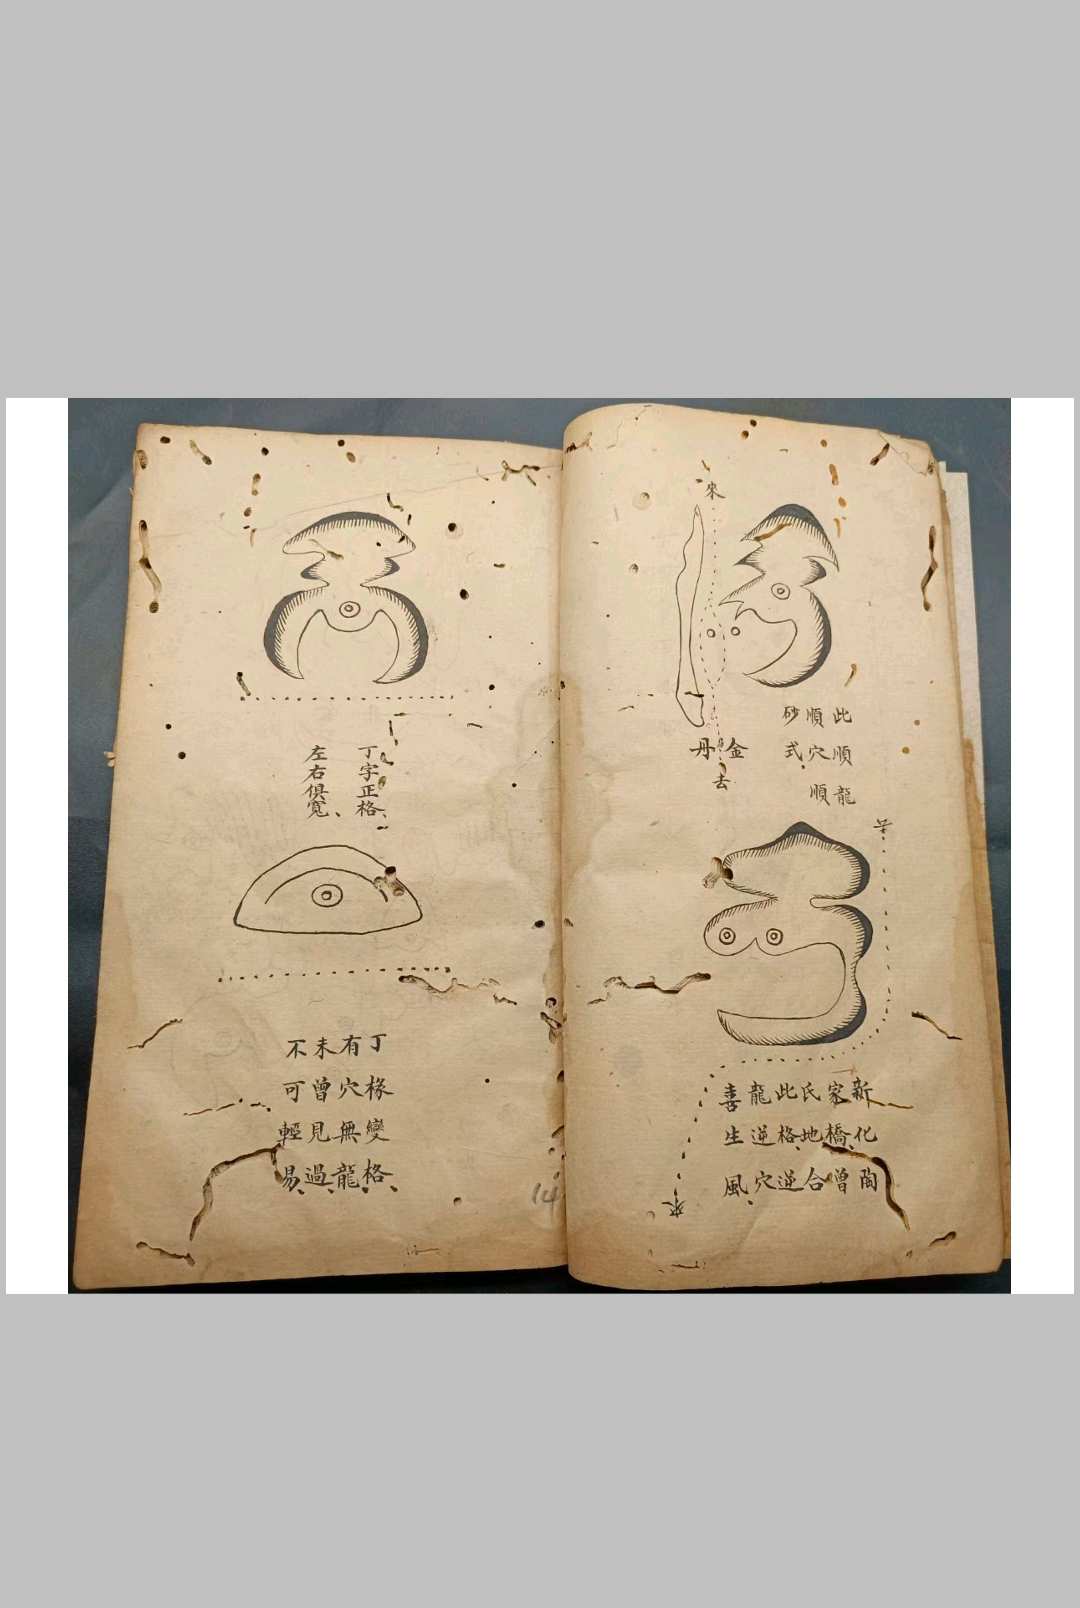 來
此順龍
順穴順
砂式
金丹
去
新化陶
家橋曾
氏地合
此格逆
龍逆穴
喜生風
來
丁字正格
左右俱寬
丁椽變格
有穴無龍
未曾見過
不可輕易
14